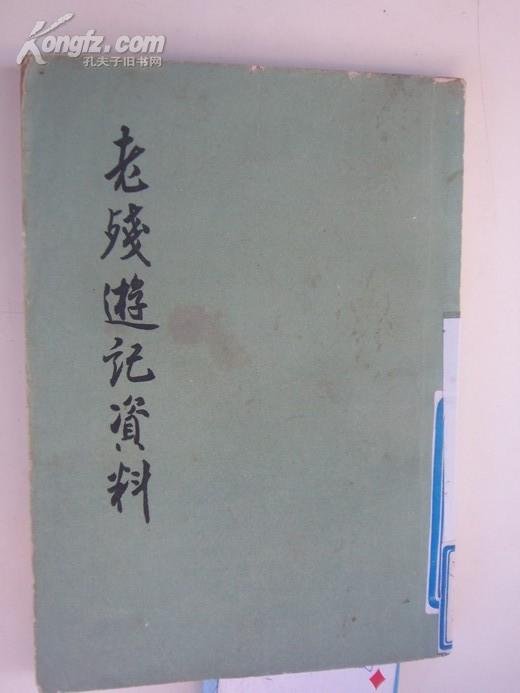 Kongfz.com
孔夫子旧书网
老殘遊記資料